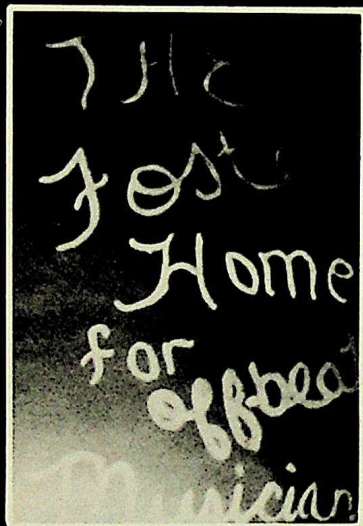 THe
Foste
Home
for
offbeat
Musician